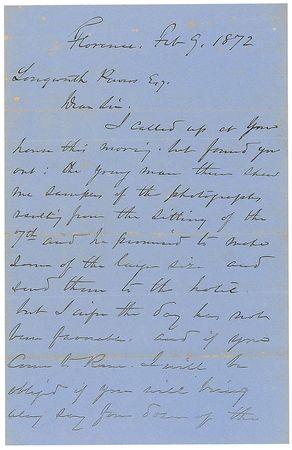 Florence. Feb 9, 1872
Longworth Powers Esq.
Dear Sir.
I called up at your
house this morning. but found you
out: the young man there shew
me samples of the photographs
resulting from the sitting of the
7th and he promised to make
some of the large size and
send them to the hotel.
but I the day has not
been favorable. and if you
come to Rome. I will be
obliged if you will bring
along say four dozen of the